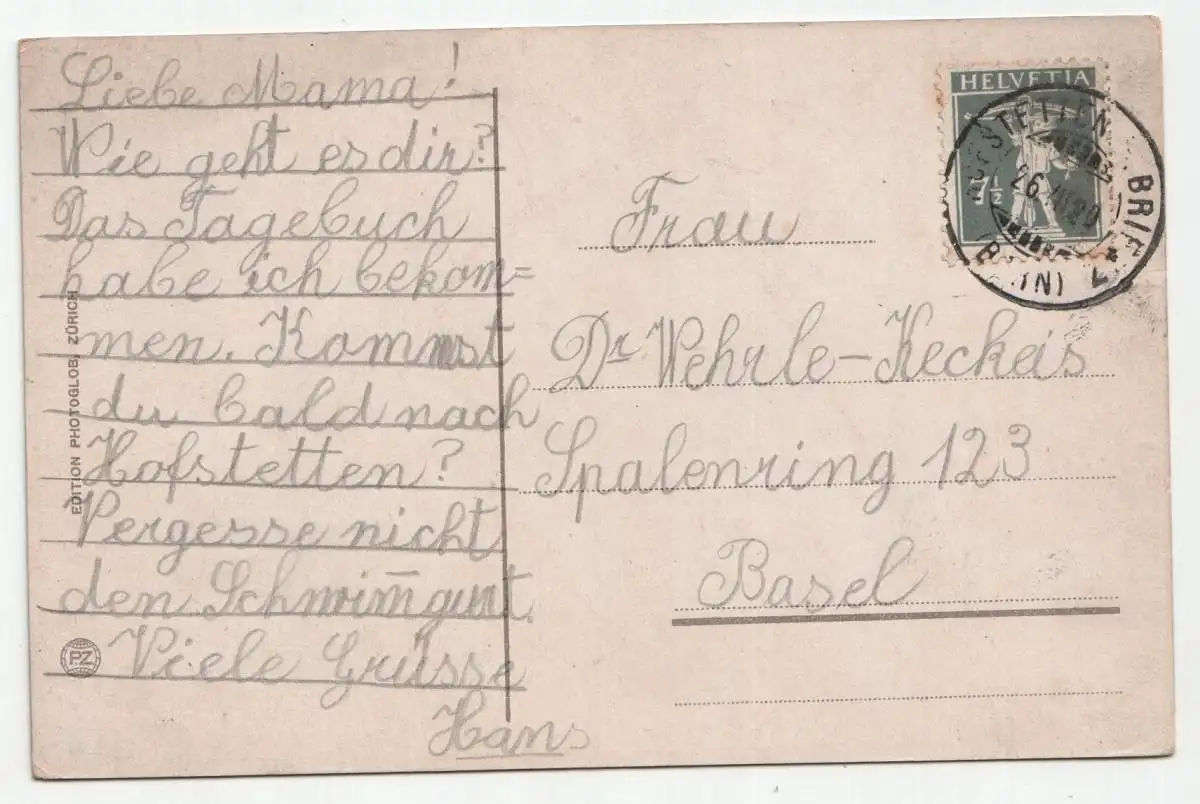 Liebe Mama!
Wie geht es dir?
Das Tagebuch
habe ich bekom=
men. Kommst
du bald nach
Hofstetten?
Vergesse nicht
den Schwim̅gurt.
Viele Grüsse
Hans
EDITION PHOTOGLOB, ZÜRICH
PZ
HELVETIA
7½
HOFSTETTEN B. BRIENZ
26
(BERN)
Frau
Dr Wehrle-Keckeis
Spalenring 123
Basel